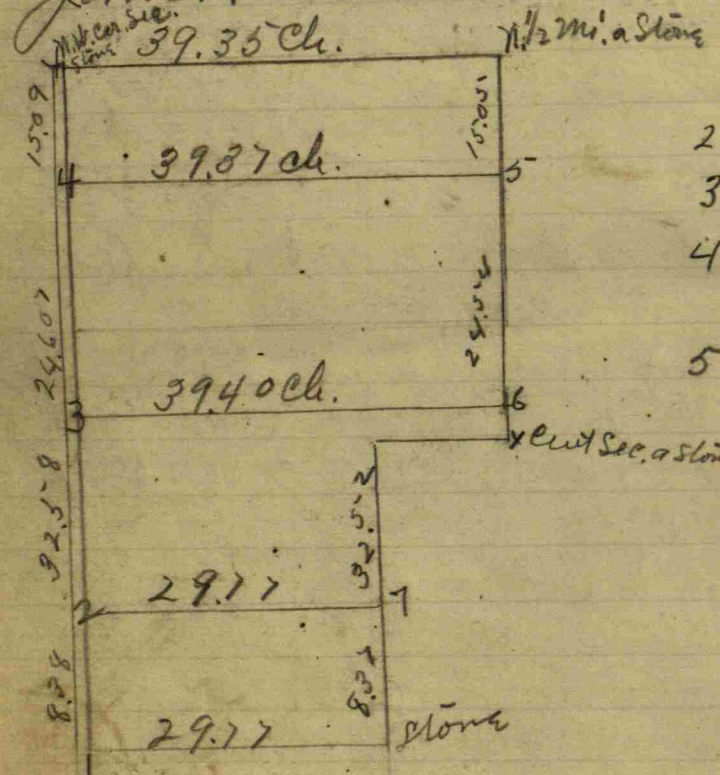 N.W. Cor. Sec.
Stone
39.35 Ch.
N. 1/2 Mi. a Stone
15.09
15.05
2
4
39.37 Ch.
5
3
4
24.607
24.52
5
3
39.40 Ch.
6
x Cent Sec. a Ston
32.58
32.52
2
29.77
7
8.38
8.37
29.77
Stone